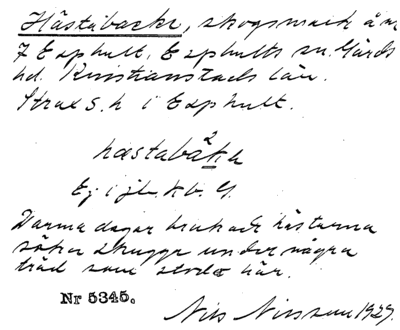 Hästabacke, skogsmark å nr
7 Esphult, Esphults sn. Gärds
hd. Kristianstads län.
Strax S. h i Esphult.
hæstabàka
2
Ej i jb. k b. G.
Varma dagar brukade hästarna
söka skugga under några
träd som stodo här.
Nr 5345.
Nils Nilsson 1929.